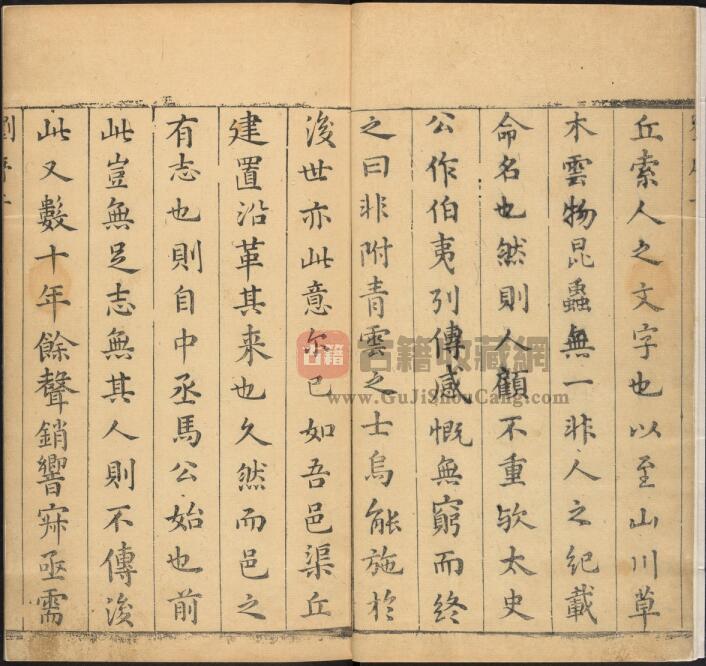 丘索人之文字也以至山川草
木雲物昆蟲無一非人之紀載
命名也然則人顧不重欤太史
公作伯夷列傳感慨無窮而終
之曰非附青雲之士烏能施於
後世亦此意尔已如吾邑渠丘
建置沿革其来也久然而邑之
有志也則自中丞馬公始也前
此豈無足志無其人則不傳後
此又數十年餘聲銷響寂亟需
古籍
古籍收藏網
www.GuJiShouCang.com